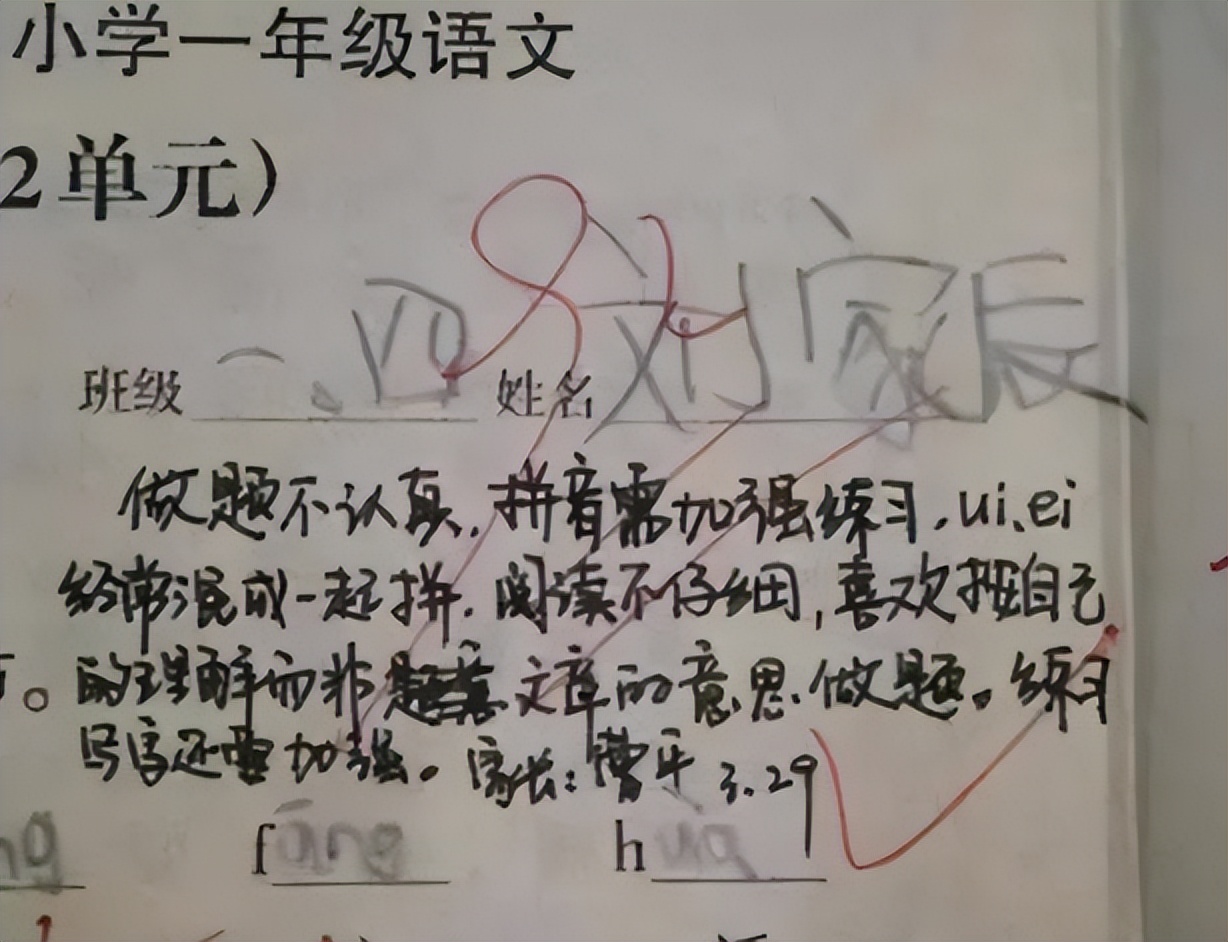 小学一年级语文
2单元)
班级 一、四 姓名 刘家辰
做题不认真,拼音需加强练习,ui、ei
经常混成一起拼.阅读不仔细,喜欢按自己
。的理解而非文章的意思做题。练习
写字还需加强。家长:曹平 3.29
ng f ang h